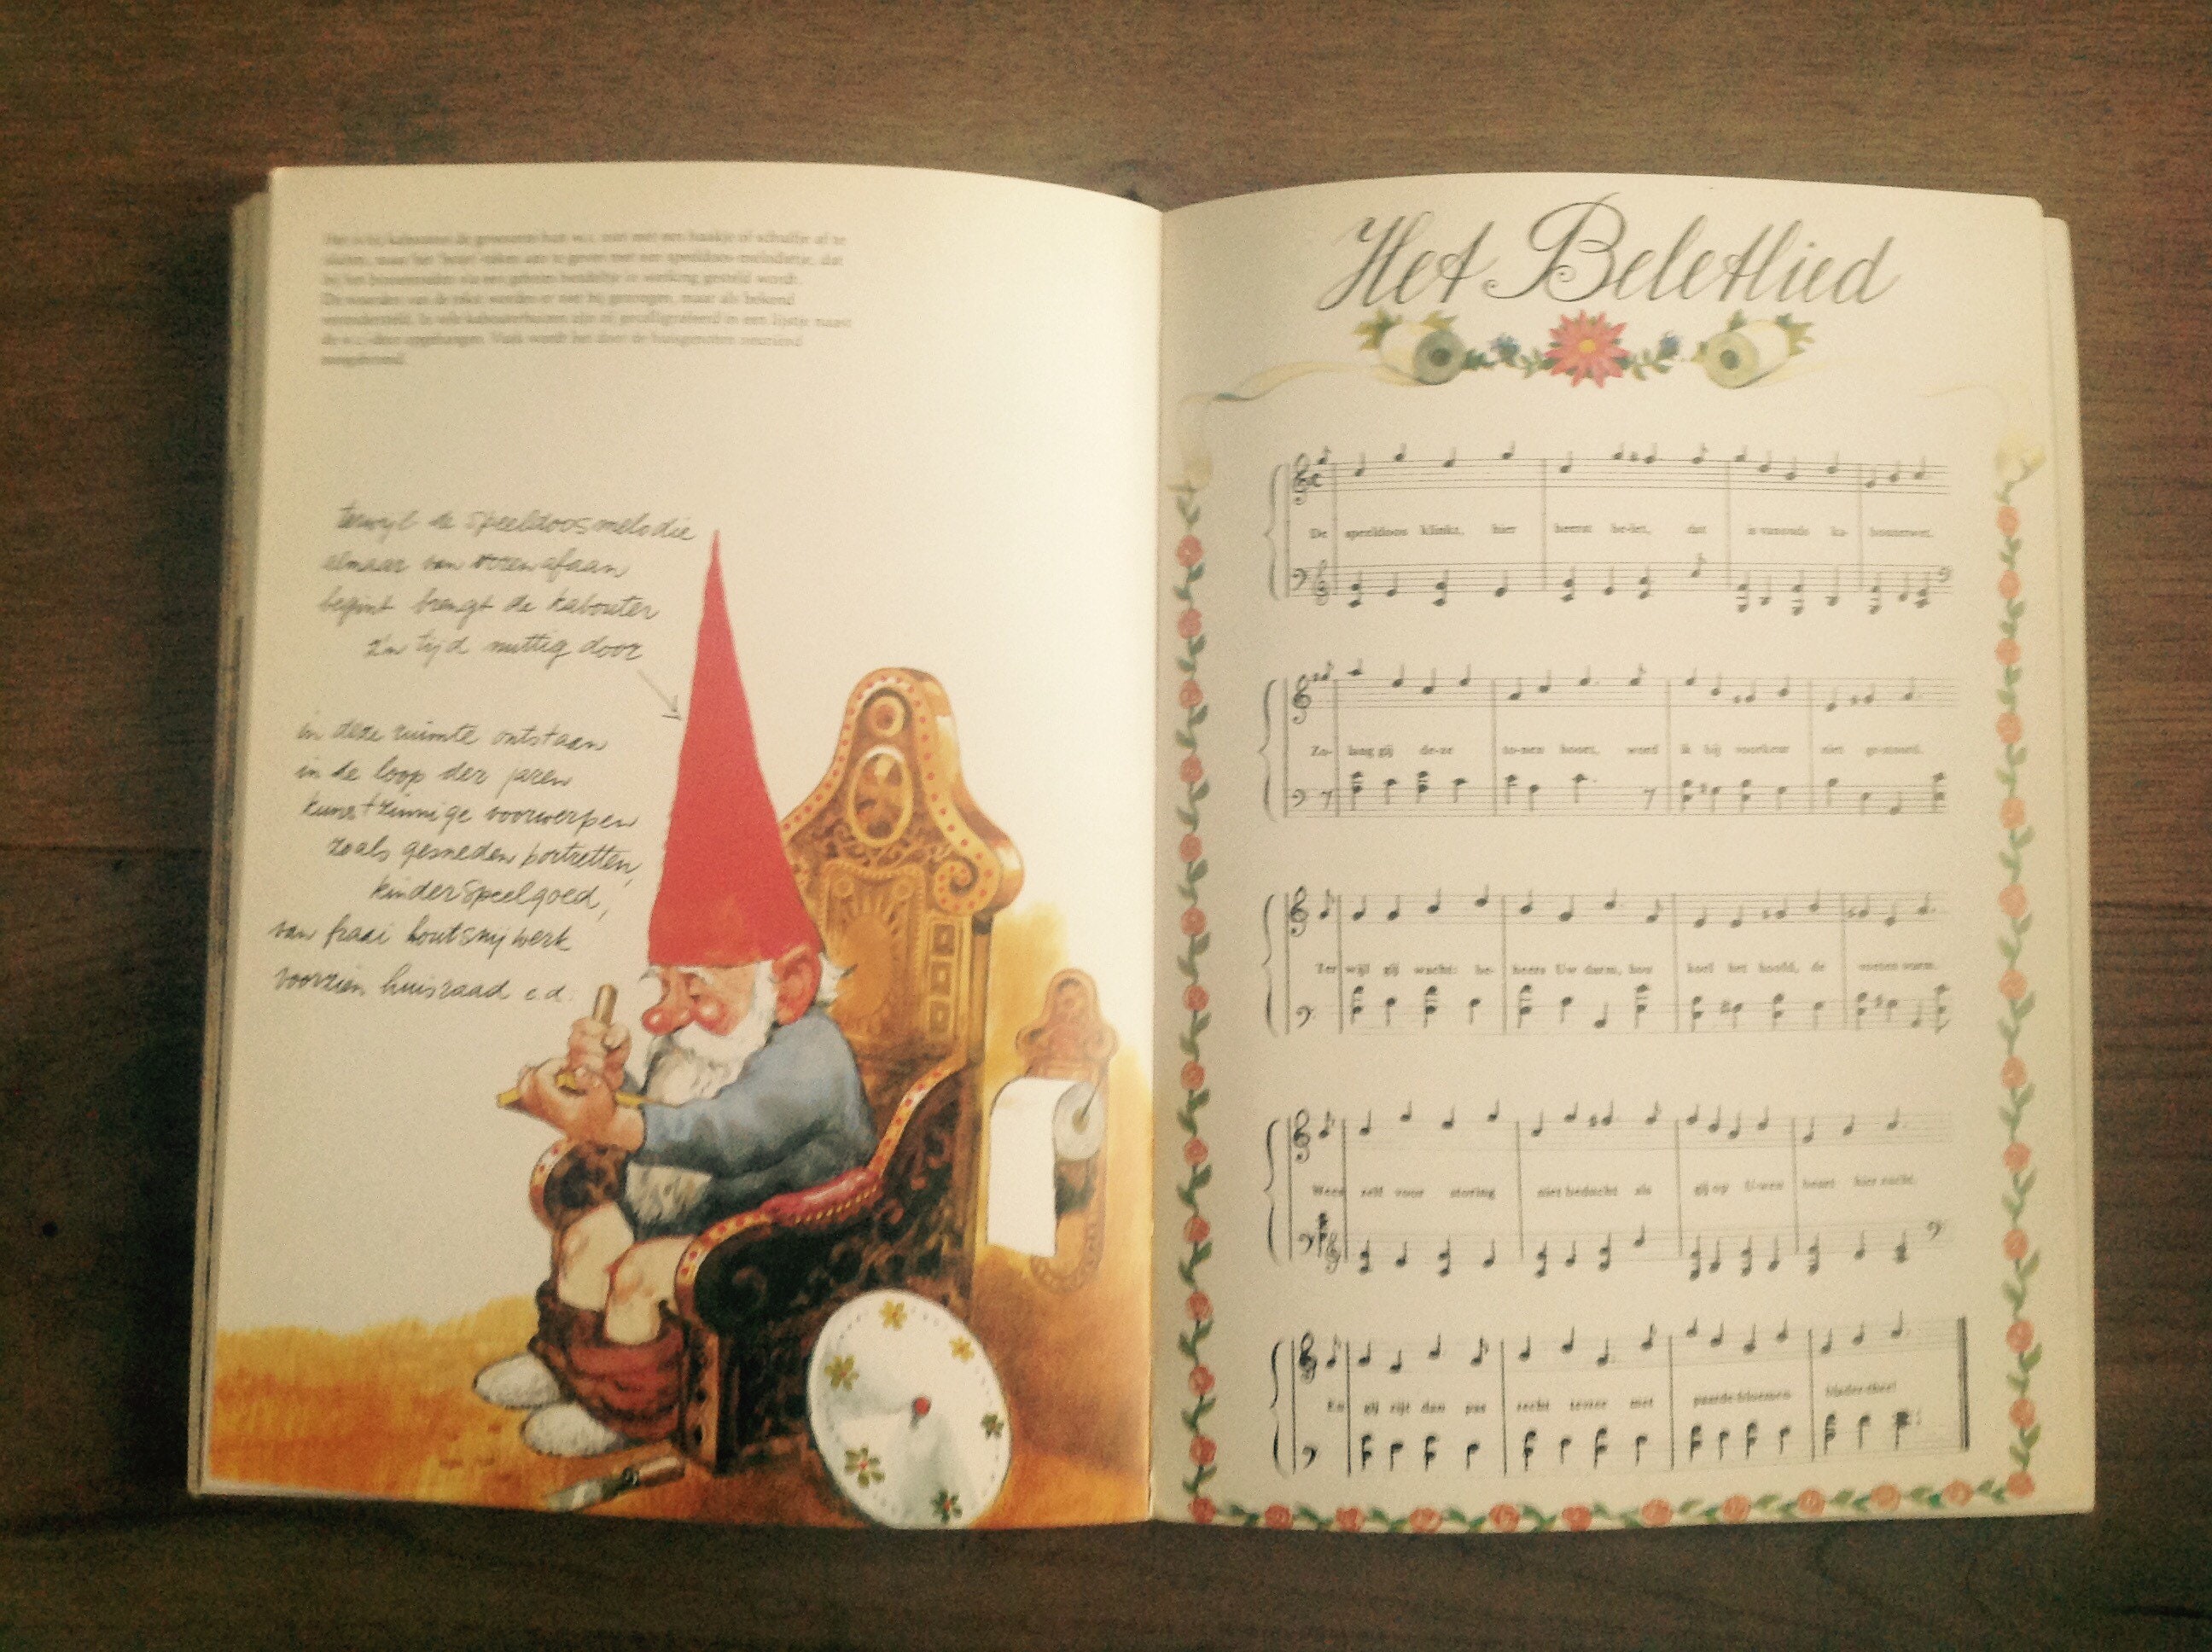 Het is bij kabouters de gewoonte hun w.c. niet met een haakje of schuifje af te
sluiten, maar het 'belet' teken aan te geven met een speeldoos-melodietje, dat
bij het binnentreden via een geheim hendeltje in werking gesteld wordt.
De woorden van de tekst worden er niet bij gezongen, maar als bekend
verondersteld. In vele kabouterhuizen zijn ze gecalligrafeerd in een lijstje naast
de w.c.-deur opgehangen. Vaak wordt het door de huisgenoten neuriënd
meegebromd.
terwijl de speeldoosmelodie
almaar van voren afaan
begint brengt de kabouter
z'n tijd nuttig door
in deze ruimte ontstaan
in de loop der jaren
kunstzinnige voorwerpen
zoals gesneden portretten,
kinderspeelgoed,
van fraai houtsnijwerk
voorzien huisraad e.d.
Het Beletlied
De speeldoos klinkt, hier heerst be-let, dat is vanouds ka- bouterwet.
Zo- lang gij de-ze to-nen hoort, word ik bij voorkeur niet ge-stoord.
Ter wijl gij wacht: be- heers Uw darm, hou koel het hoofd, de voeten warm.
Wees zelf voor storing niet beducht als gij op U-wen beurt hier zucht.
En gij zijt dan pas recht tevree met paarde-bloemen- blader-thee!